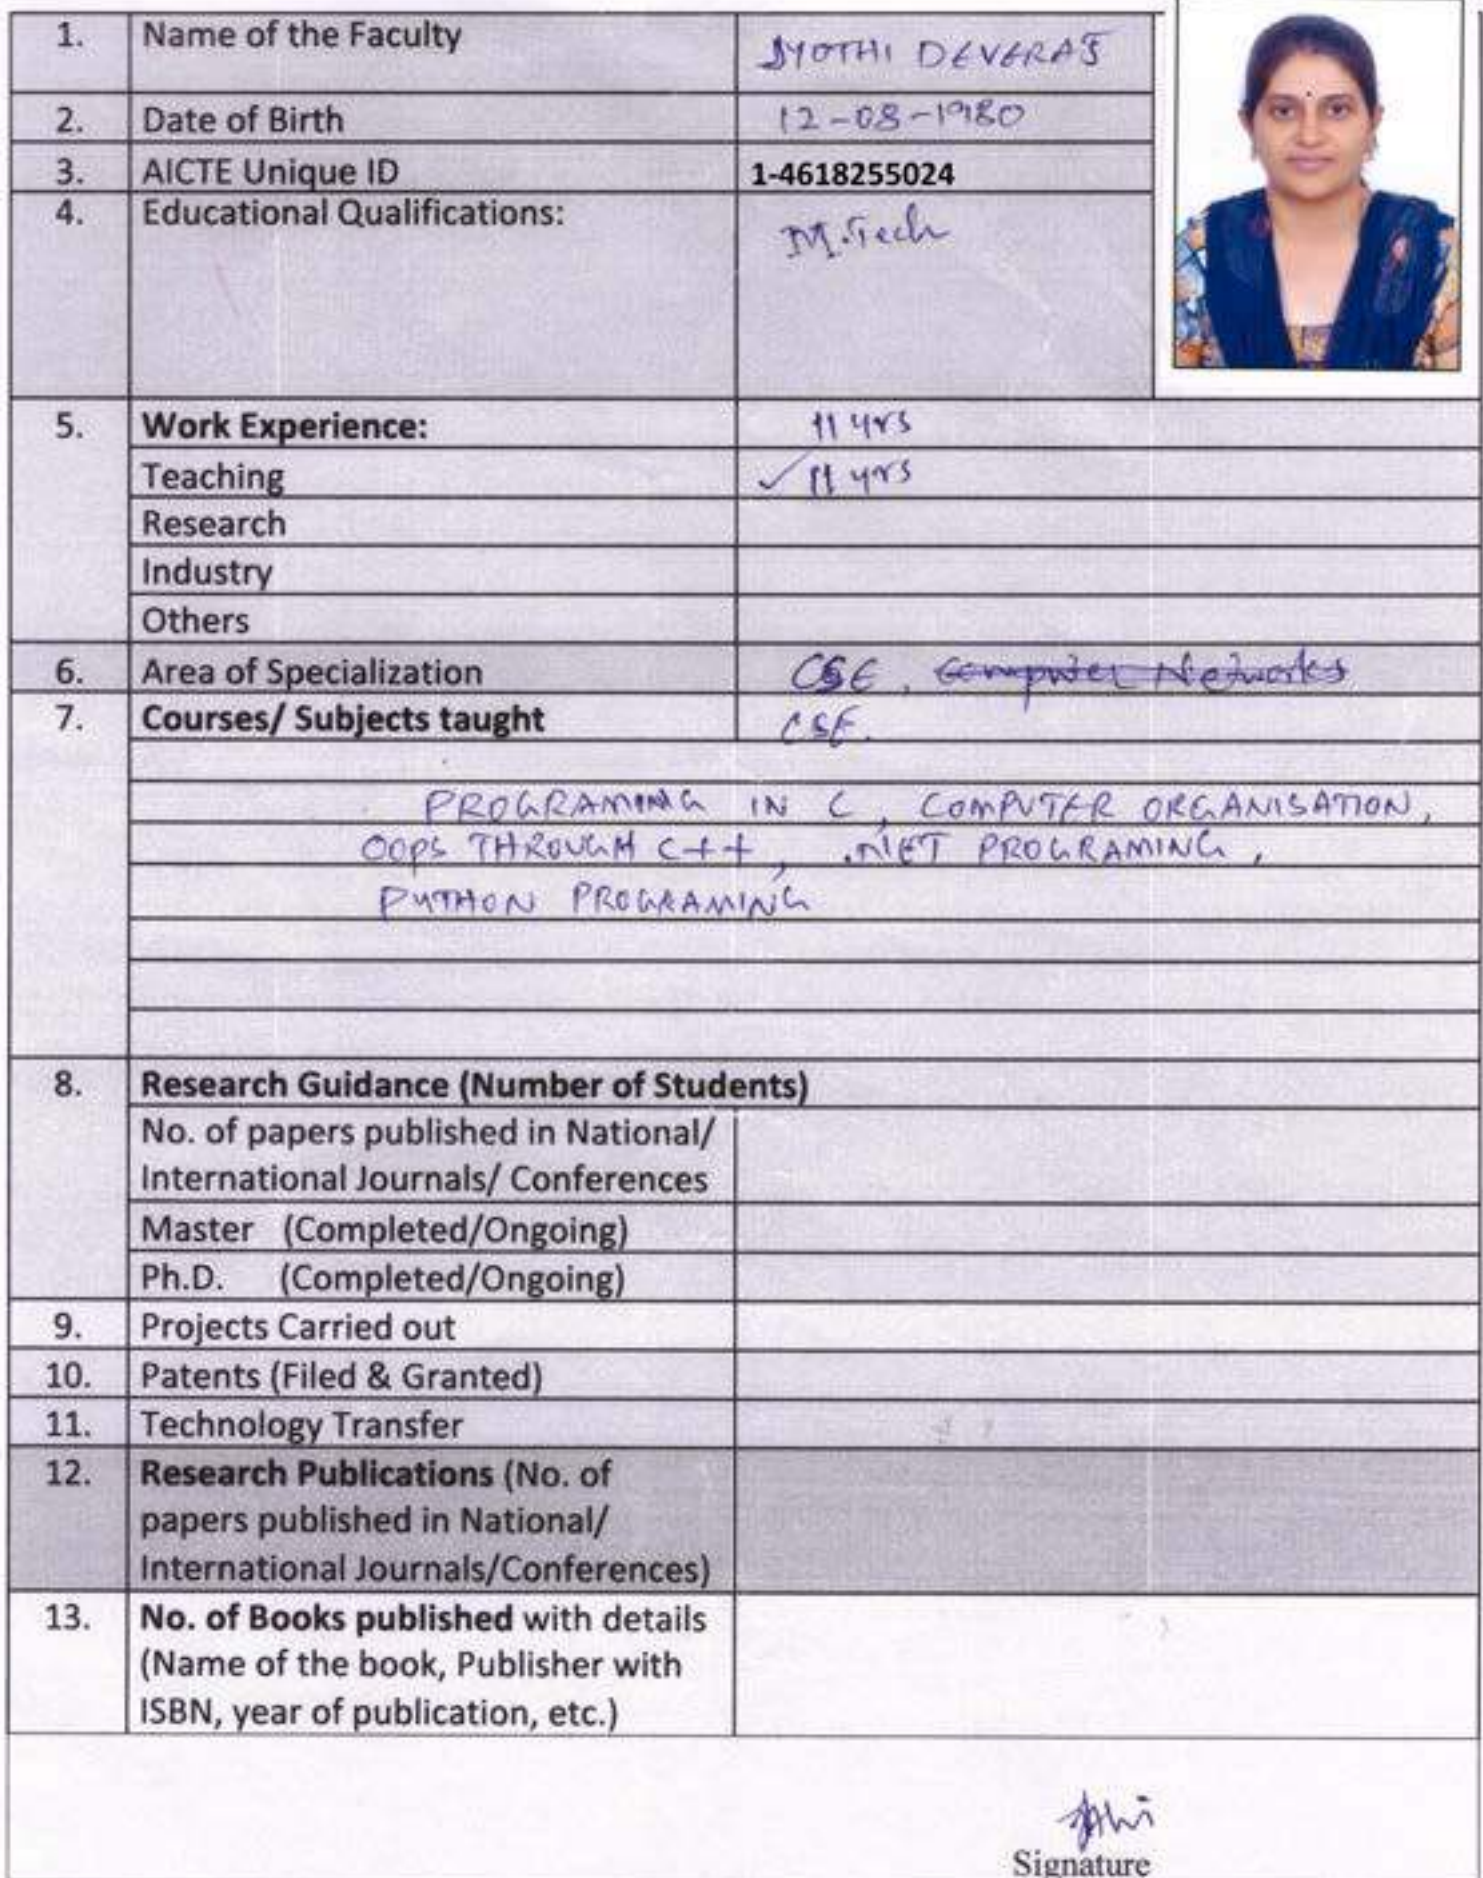 1. Name of the Faculty JYOTHI DEVERAJ
2. Date of Birth 12-08-1980
3. AICTE Unique ID 1-4618255024
4. Educational Qualifications: M.Tech
5. Work Experience: 11 yrs
Teaching ✓ 11 yrs
Research
Industry
Others
6. Area of Specialization CSE, Computer Networks
7. Courses/ Subjects taught CSE.
PROGRAMING IN C, COMPUTER ORGANISATION,
OOPS THROUGH C++, .NET PROGRAMING,
PYTHON PROGRAMING
8. Research Guidance (Number of Students)
No. of papers published in National/
International Journals/ Conferences
Master (Completed/Ongoing)
Ph.D. (Completed/Ongoing)
9. Projects Carried out
10. Patents (Filed & Granted)
11. Technology Transfer
12. Research Publications (No. of
papers published in National/
International Journals/Conferences)
13. No. of Books published with details
(Name of the book, Publisher with
ISBN, year of publication, etc.)
Signature